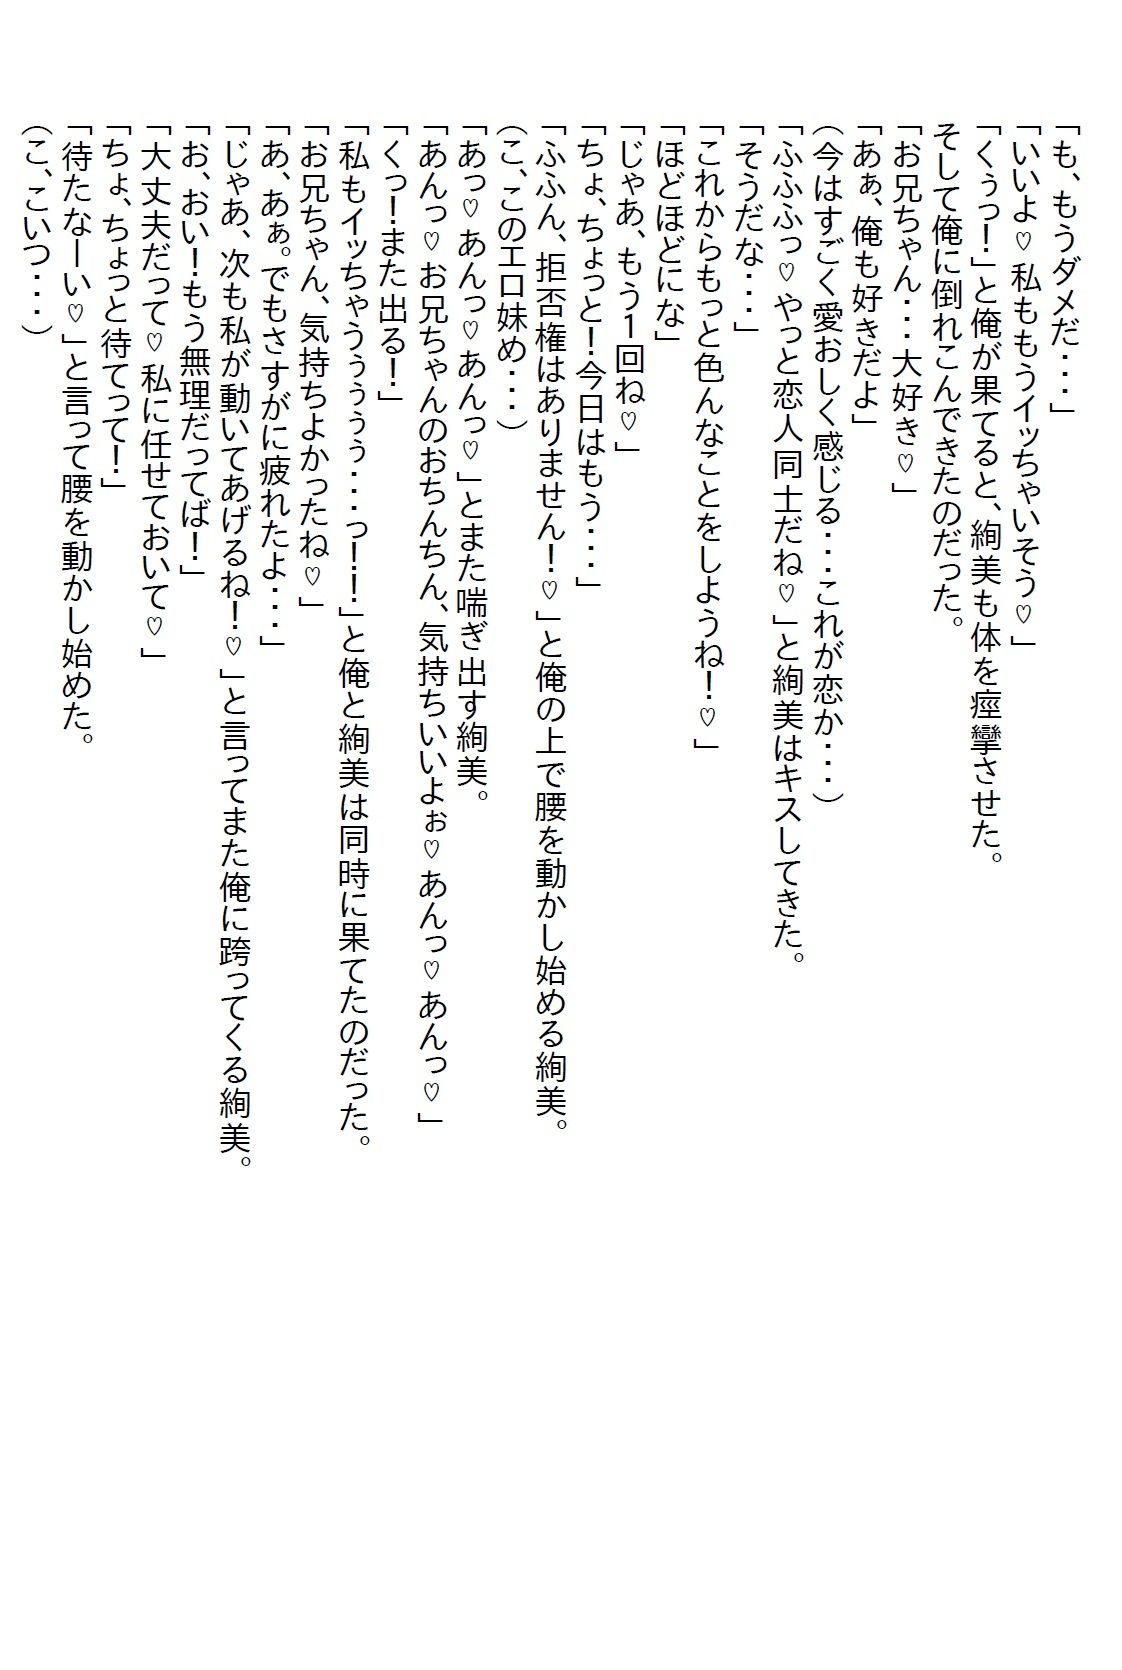 「も、もうダメだ・・・」
「いいよ♡私ももうイッちゃいそう♡」
「くぅっ！」と俺が果てると、絢美も体を痙攣させた。
そして俺に倒れこんできたのだった。
「お兄ちゃん・・・大好き♡」
「あぁ、俺も好きだよ」
（今はすごく愛おしく感じる・・・これが恋か・・・）
「ふふふっ♡やっと恋人同士だね♡」と絢美はキスしてきた。
「そうだな・・・」
「これからもっと色んなことをしようね！♡」
「ほどほどにな」
「じゃあ、もう1回ね♡」
「ちょ、ちょっと！今日はもう・・・」
「ふふん、拒否権はありません！♡」と俺の上で腰を動かし始める絢美。
（こ、このエロ妹め・・・）
「あっ♡あんっ♡あんっ♡」とまた喘ぎ出す絢美。
「あんっ♡お兄ちゃんのおちんちん、気持ちいいよぉ♡あんっ♡あんっ♡」
「くっ！また出る！」
「私もイッちゃうぅぅぅぅ・・・っ！！」と俺と絢美は同時に果てたのだった。
「お兄ちゃん、気持ちよかったね♡」
「あ、あぁ。でもさすがに疲れたよ・・・」
「じゃあ、次も私が動いてあげるね！♡」と言ってまた俺に跨ってくる絢美。
「お、おい！もう無理だってば！」
「大丈夫だって♡私に任せておいて♡」
「ちょ、ちょっと待てって！」
「待たなーい♡」と言って腰を動かし始めた。
（こ、こいつ・・・）